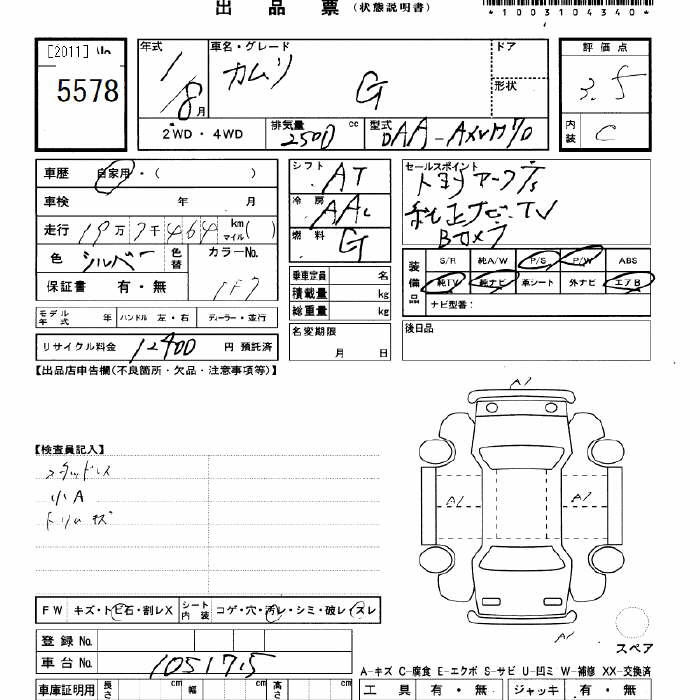 出 品 票 (状態説明書)
*1003104340*
[2011]
5578
年式 1/8月
車名・グレード カムリ G
ドア
形状
評価点 3.5
内装 C
2WD・4WD
排気量 2500 cc
型式 DAA-AXVH70
車歴 自家用・( )
車検 年 月
走行 19万7千464 kmマイル( )
色 シルバー 色替 カラーNo. 1F7
保証書 有・無
モデル年式 年 ハンドル 左・右 ディーラー・並行
リサイクル料金 12400 円 預託済
シフト AT
冷房 AAC
燃料 G
乗車定員 名
積載量 kg
総重量 kg
名変期限 月 日
セールスポイント
純正ナビ・TV
Bカメラ
装備品 S/R 純A/W P/S P/W ABS
純TV 純ナビ 革シート 外ナビ エアB
ナビ型番:
後日品
【出品店申告欄(不良箇所・欠品・注意事項等)】
【検査員記入】
スタッドレス
小A
トリムキズ
A1
A1 A1
A1
スペア
FW キズ・トビ石・割レX シート内装 コゲ・穴・汚レ・シミ・破レ・スレ
登録 No.
車台 No. 1051715
A-キズ C-腐食 E-エクボ S-サビ U-凹ミ W-補修 XX-交換済
車庫証明用 長さ cm 幅 cm 高さ cm
工具 有・無 ジャッキ 有・無